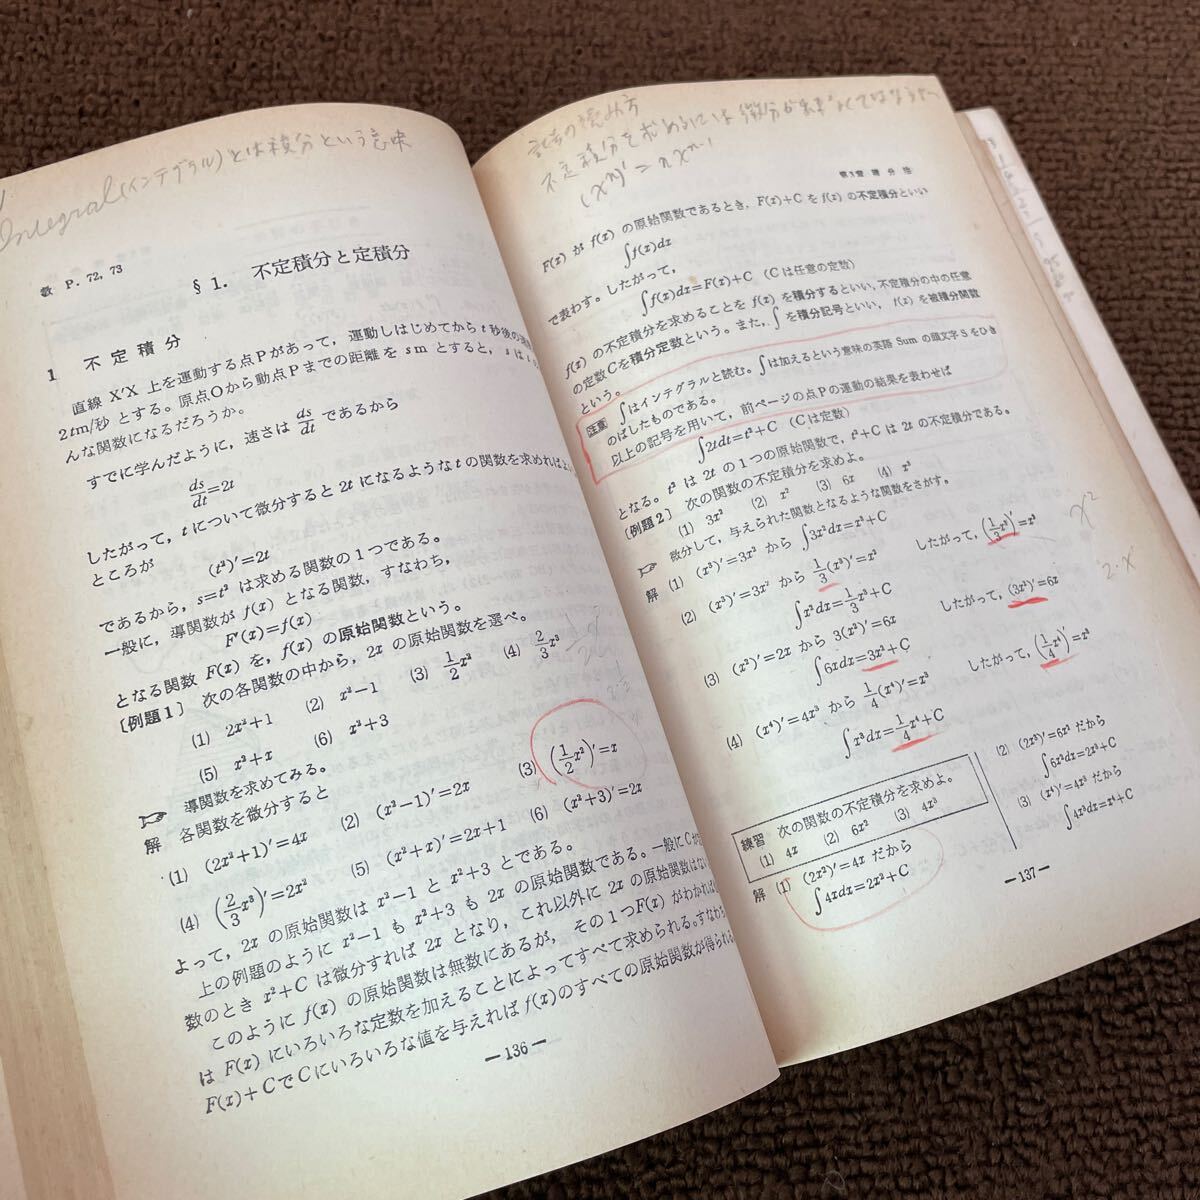 Integral (インテグラル) とは積分という意味
教 P. 72, 73
§ 1. 不定積分と定積分
1 不定積分
直線 X′X 上を運動する点Pがあって，運動しはじめてから t 秒後の
2tm/秒 とする。原点Oから動点Pまでの距離を sm とすると，s は t の
んな関数になるだろうか。
すでに学んだように，速さは ds/dt であるから
ds/dt=2t
したがって，t について微分すると 2t になるような t の関数を求めればよい
ところが (t²)′=2t
であるから，s=t² は求める関数の1つである。
一般に，導関数が f(x) となる関数，すなわち，
F′(x)=f(x)
となる関数 F(x) を，f(x) の原始関数という。
〔例題1〕 次の各関数の中から，2x の原始関数を選べ。
(1) 2x²+1 (2) x²−1 (3) 1/2x² (4) 2/3x³
(5) x²+x (6) x²+3
☞ 導関数を求めてみる。
解 各関数を微分すると
(1) (2x²+1)′=4x (2) (x²−1)′=2x (3) (1/2x²)′=x
(4) (2/3x³)′=2x² (5) (x²+x)′=2x+1 (6) (x²+3)′=2x
よって，2x の原始関数は x²−1 と x²+3 とである。
上の例題のように x²−1 も x²+3 も 2x の原始関数である。一般に C が
数のとき x²+C は微分すれば 2x となり，これ以外に 2x の原始関数はない
このように f(x) の原始関数は無数にあるが，その1つF(x) がわかれば
は F(x) にいろいろな定数を加えることによってすべて求められる。すなわち
F(x)+C でCにいろいろな値を与えれば f(x)のすべての原始関数が得られる
—136—
記号の読み方
不定積分を求めるには微分が出来なくてはならない
(xⁿ)′ = n xⁿ⁻¹
第3章 積分法
F(x) が f(x) の原始関数であるとき，F(x)+C を f(x) の不定積分といい
∫f(x)dx
で表わす。したがって，
∫f(x)dx=F(x)+C (Cは任意の定数)
f(x) の不定積分を求めることを f(x) を積分するといい，不定積分の中の任意
の定数Cを積分定数という。また，∫ を積分記号といい，f(x) を被積分関数
という。
注意 ∫はインテグラルと読む。∫は加えるという意味の英語 Sum の頭文字 S をひき
のばしたものである。
以上の記号を用いて，前ページの点Pの運動の結果を表わせば
∫2tdt=t²+C (Cは定数)
となる。t² は 2t の1つの原始関数で，t²+C は 2t の不定積分である。
〔例題2〕 次の関数の不定積分を求めよ。
(1) 3x² (2) x² (3) 6x (4) x³
☞ 微分して，与えられた関数となるような関数をさがす。
解 (1) (x³)′=3x² から ∫3x²dx=x³+C
(2) (x³)′=3x² から 1/3(x³)′=x² したがって，(1/3x³)′=x²
x²
∫x²dx=1/3x³+C
2・x
(3) (x²)′=2x から 3(x²)′=6x したがって，(3x²)′=6x
∫6xdx=3x²+C
(4) (x⁴)′=4x³ から 1/4(x⁴)′=x³ したがって，(1/4x⁴)′=x³
∫x³dx=1/4x⁴+C
練習 次の関数の不定積分を求めよ。
(1) 4x (2) 6x² (3) 4x³
解 (1) (2x²)′=4x だから
∫4xdx=2x²+C
(2) (2x³)′=6x² だから
∫6x²dx=2x³+C
(3) (x⁴)′=4x³ だから
∫4x³dx=x⁴+C
—137—